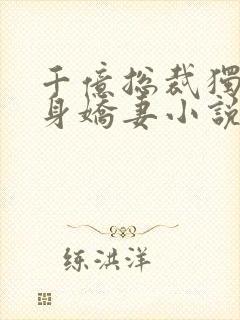 千億總裁獨
身嬌妻小說
练洪洋